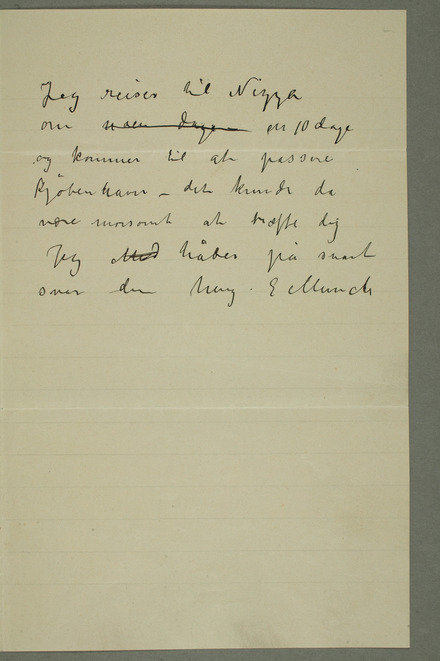 Jeg reiser til Nizza
om noen dage en 10 dage
og kommer til at passere
Kjøbenhavn – det kunde da
være morsomt at træffe dig
Jeg håber på snart
svar din heng. E Munch